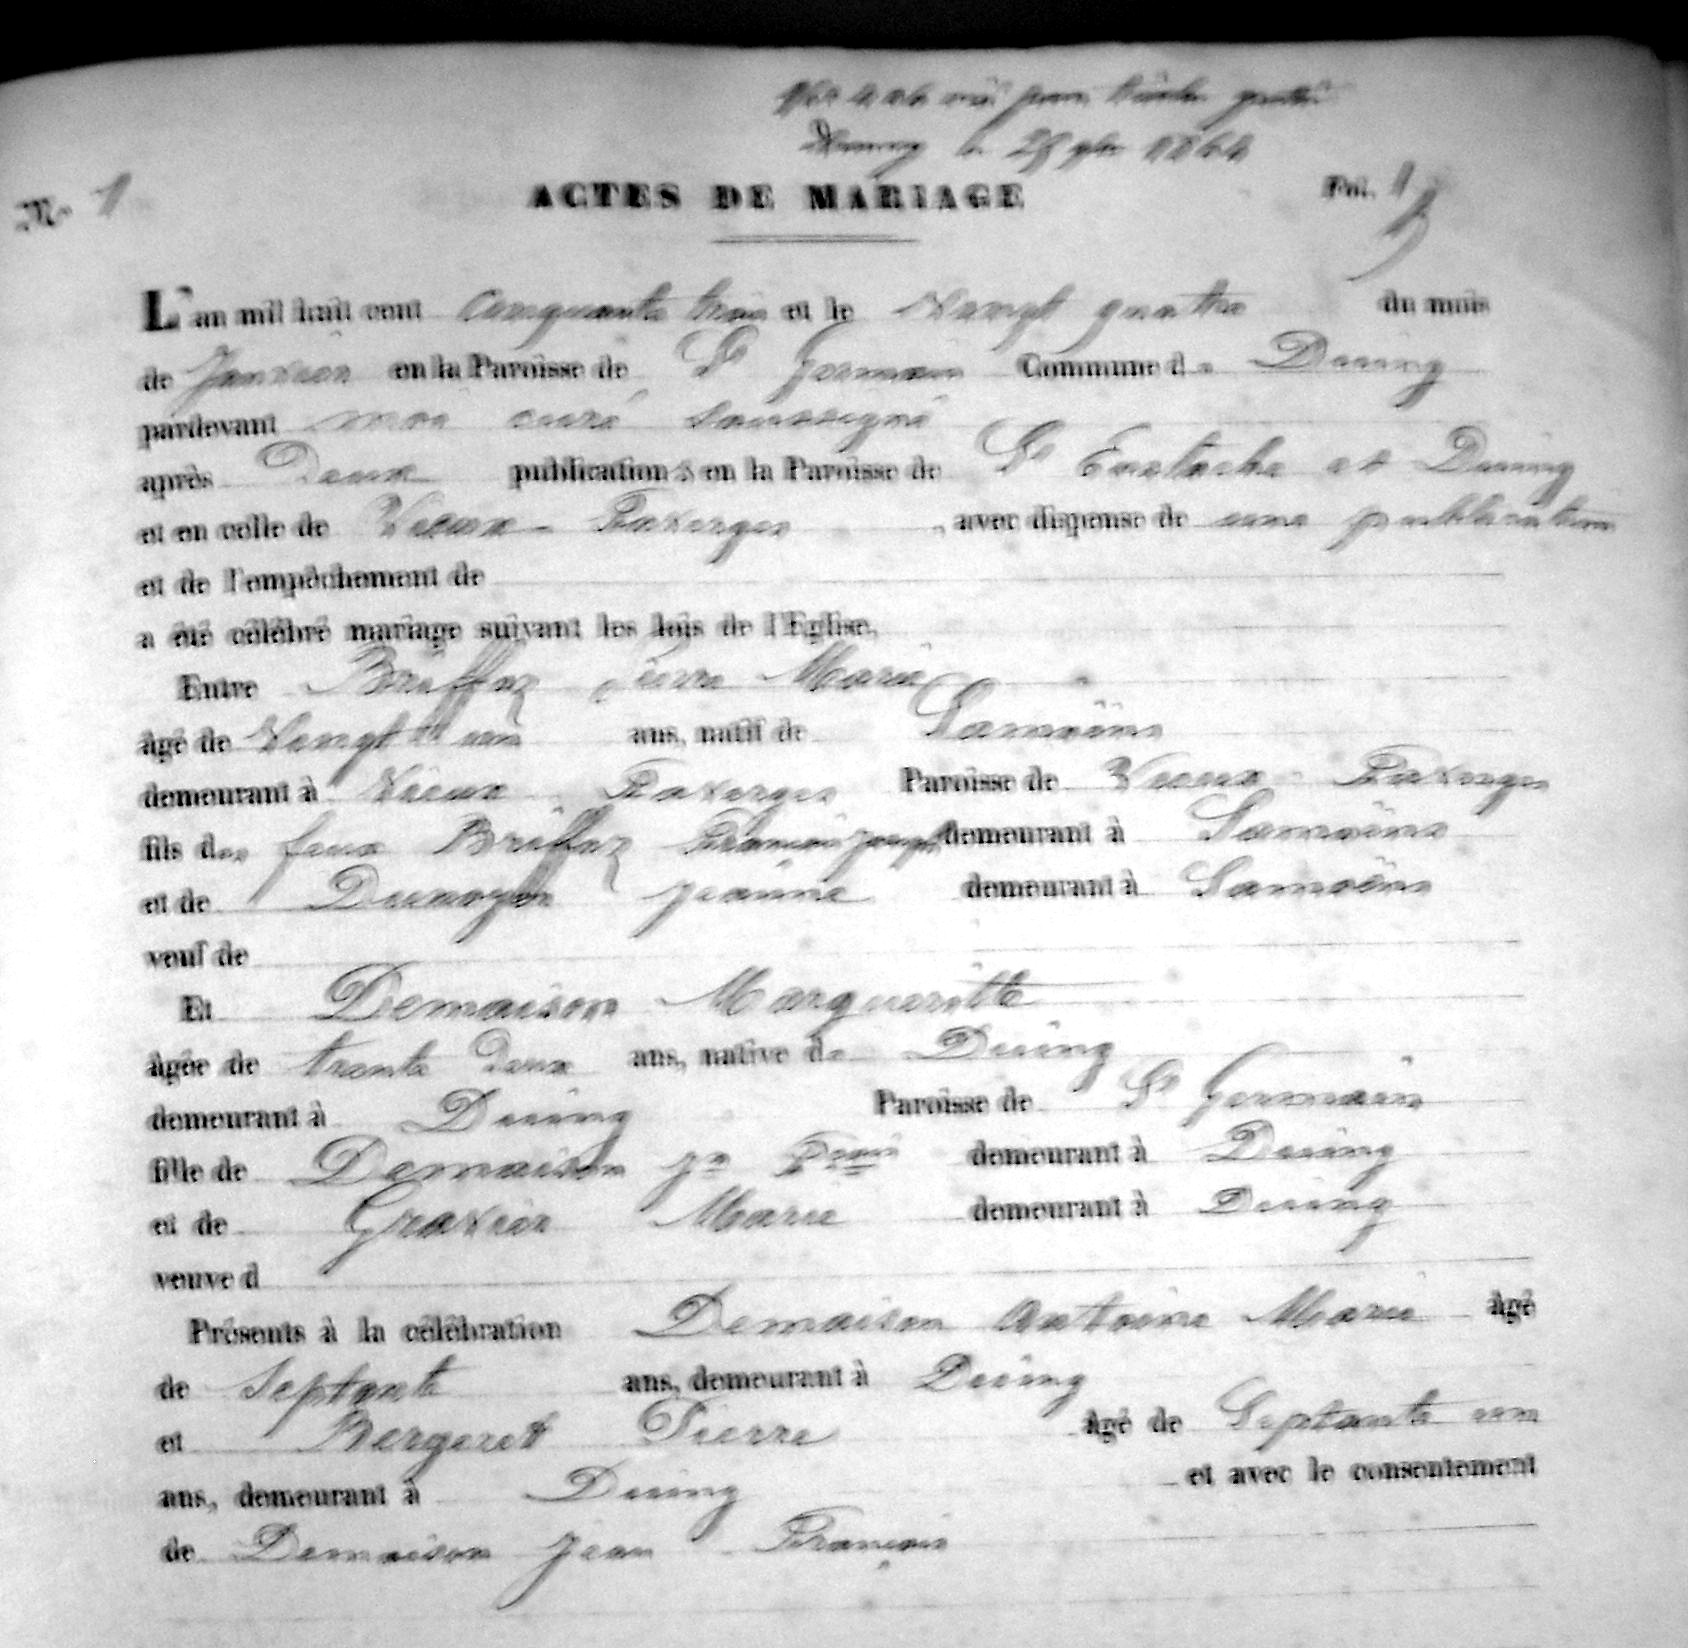 1864
N° 1
ACTES DE MARIAGE
Fol. 1
L'an mil huit cent cinquante trois et le Vingt quatre du mois
de Janvier en la Paroisse de St Germain Commune de Duing
pardevant moi curé soussigné
après Deux publications en la Paroisse de St Eustache et Duing
et en celle de Vieux-Faverges, avec dispense de une publication
et de l'empêchement de
a été célébré mariage suivant les lois de l'Eglise,
Entre Briffaz Pierre Marie
âgé de Vingt un ans, natif de Samoëns
demeurant à Vieux Faverges Paroisse de Vieux-Faverges
fils des feux Briffaz François Joseph demeurant à Samoëns
et de Dunoyer Jeanne demeurant à Samoëns
veuf de
Et Demaison Margueritte
âgée de trente Deux ans, native de Duing
demeurant à Duing Paroisse de St Germain
fille de Demaison Jn Fçois demeurant à Duing
et de Gravier Marie demeurant à Duing
veuve d
Présents à la célébration Demaison Antoine Marie âgé
de Septante ans, demeurant à Duing
et Bergeret Pierre âgé de Septante un
ans, demeurant à Duing et avec le consentement
de Demaison Jean François